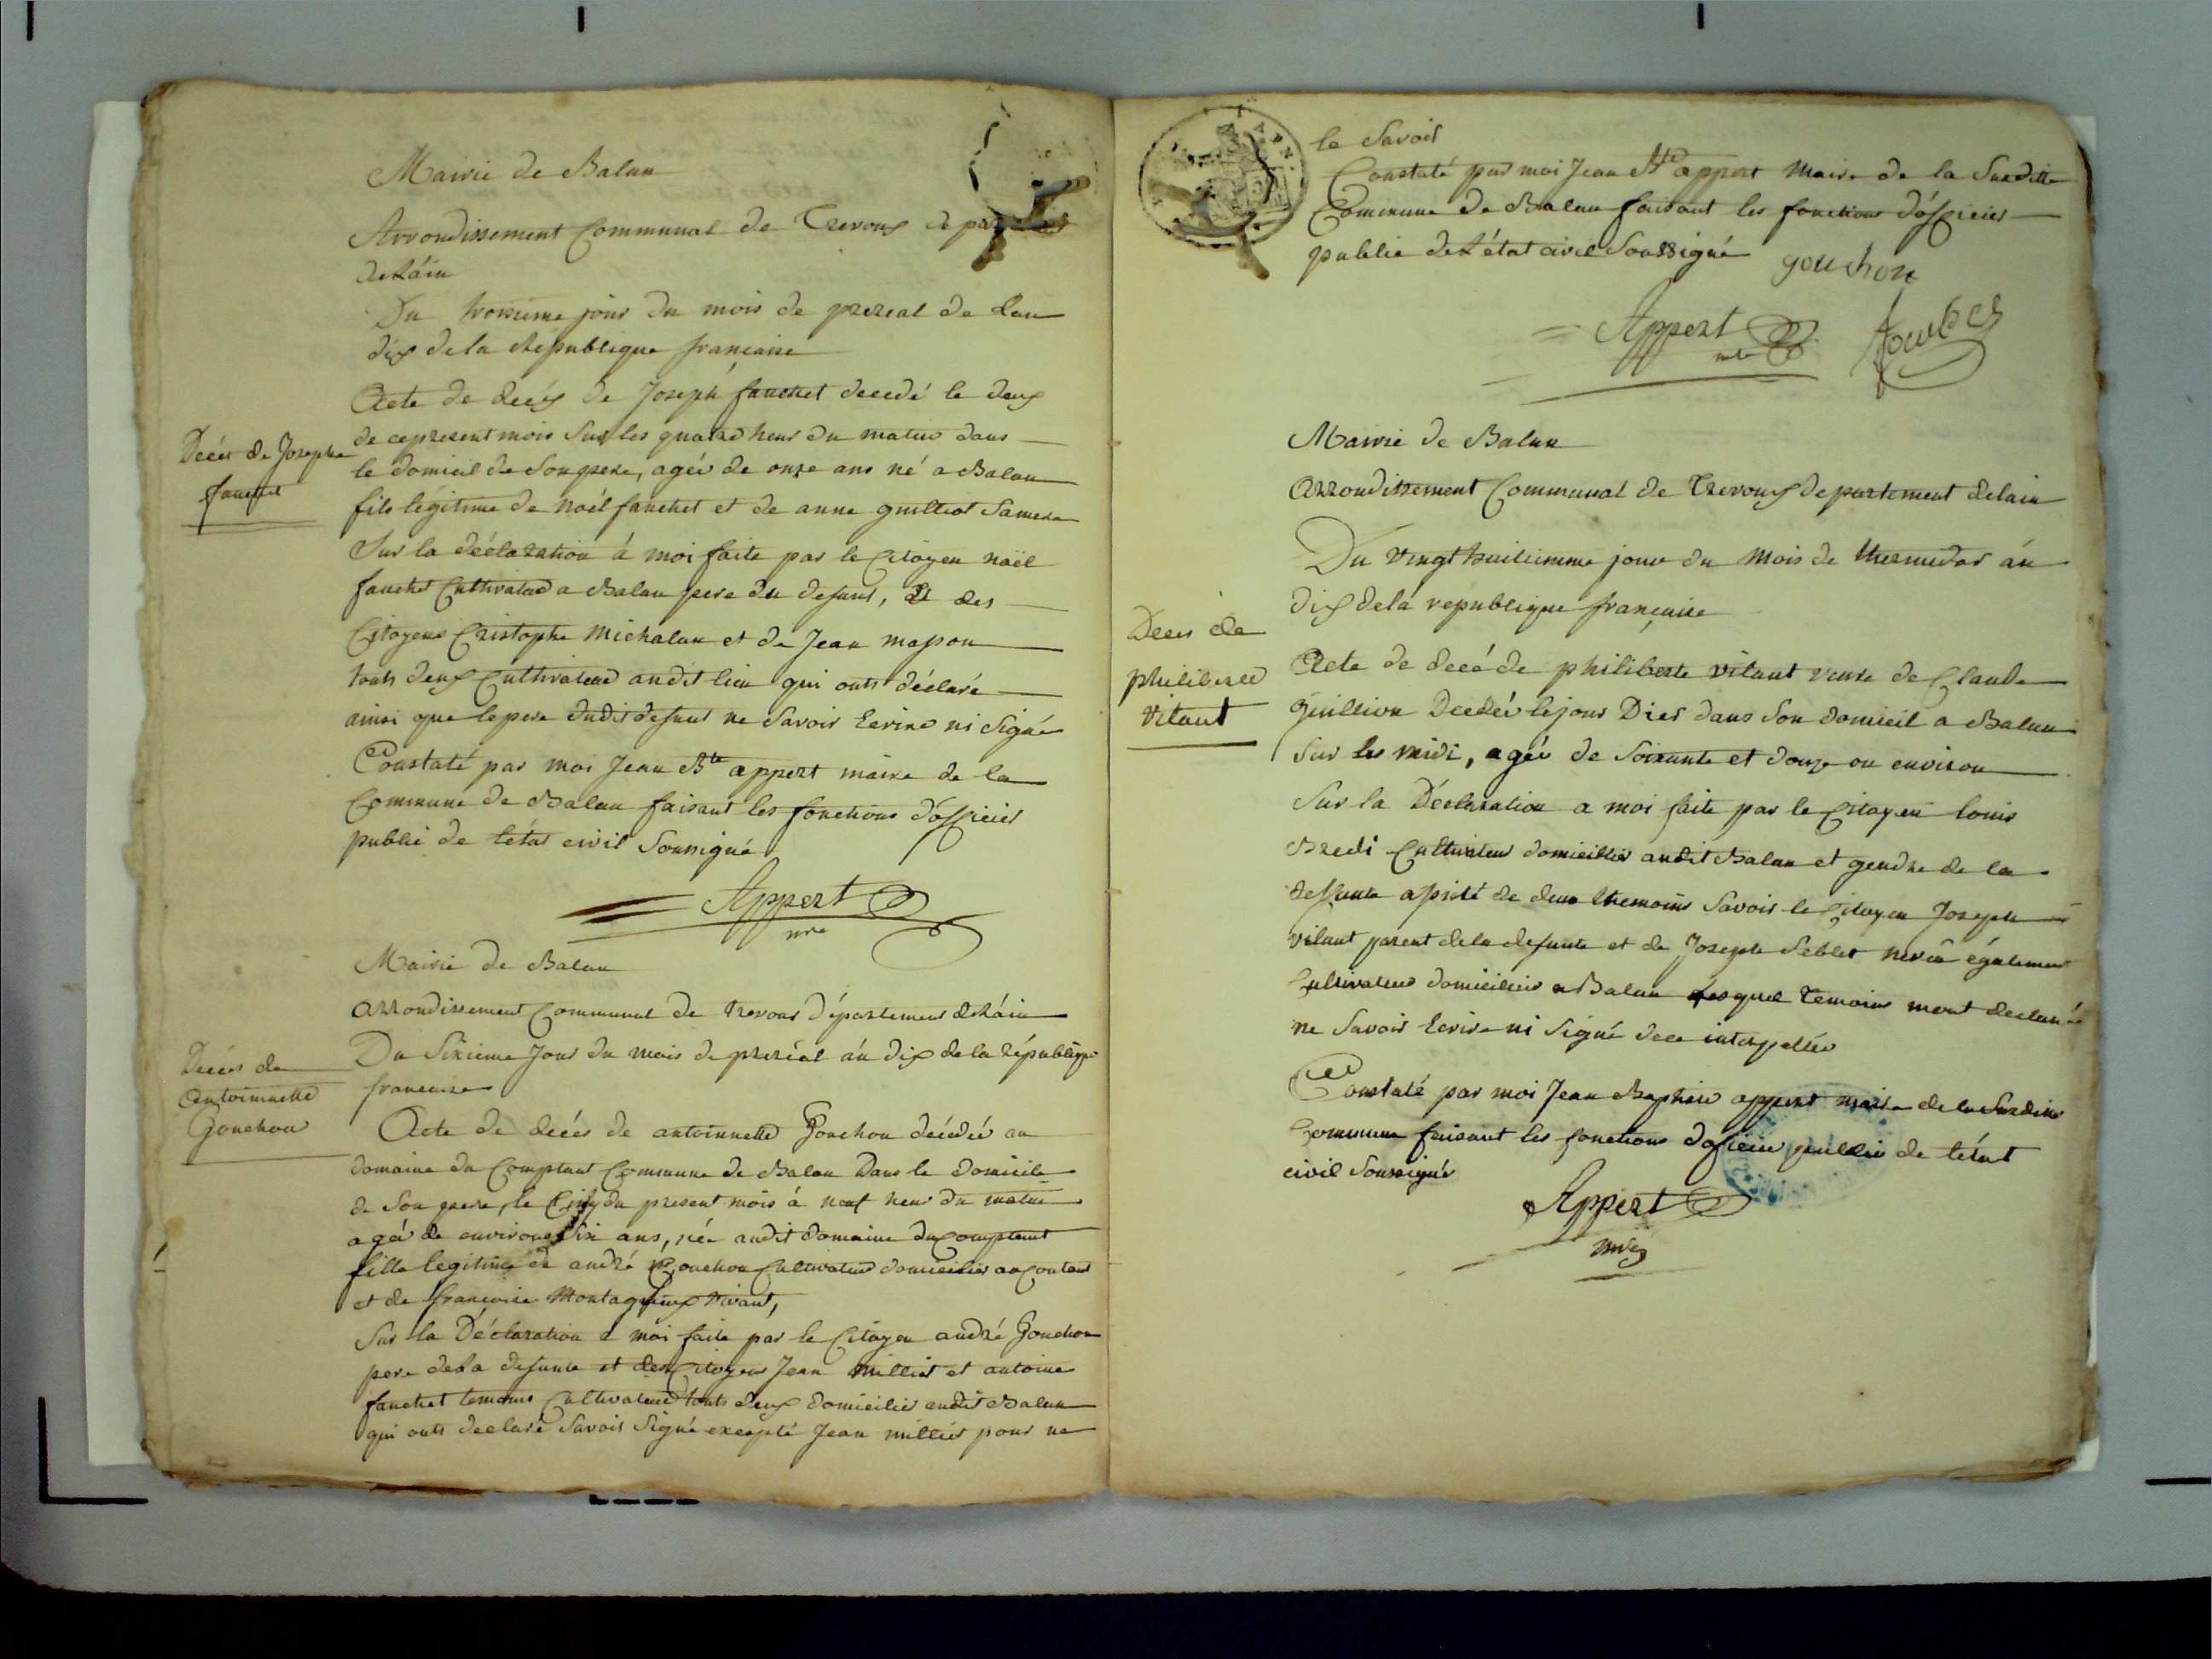 Mairie de Balan
Arrondissement Communal de Trevoux
de L'áin
Du troisieme jour du mois de prereal de Lan
dix de la République francaise
Acte de decés de Joseph fauchet decedé le deux
de ce present mois Sur les quatre heur du matin dans
le domicil de Son pere, agée de onze ans né a Balan
fils légitime de noël fauchet et de anne guilliot Samere
Sur la déclaration á moi faite par le Citoyen noël
fauchet Cultivateur a Balan pere du defunt, et des
Citoyens Cristophe Michalan et de Jean masson
touts deux Cultivateur audit lieu qui onts déclaré
ainsi que le pere dudit defunt ne Savoir Ecrire ni Signé
Constaté par moi Jean Bte appert maire de la
Commune de Balan faisant les fonctions d'officier
public de l'état civil Soussigné
Appert
mre
Décés de Joseph
fauchet
Mairie de Balan
arrondissement Communal de trevoux département de L'áin
Du Sixieme Jour du mois de prereal án dix de la république
francaise
Acte de decés de antoinnette Gonchon décedeé au
domaine du Comptant Commune de Balan Dans le domicile
de Son pere, le Cinq du present mois á neuf heur du matin
ageé de environ Six ans, née audit domaine du Comptant
fille legitime de andré Gonchon Cultivateur domicilié au Contant
et de francoise Montagnieux vivant,
Sur la Déclaration a moi faite par le Citoyen andré Gonchon
pere de la defunte et des Citoyens Jean milliet et antoine
fauchet temoins Cultivateur touts deux domicilié audit Balan
qui onts declaré Savoir Signé excepté Jean milliet pour ne
Décés de
antoinnette
Gonchon
le Savoir
Constaté par moi Jean Bte appert Maire de la Susditte
Commune de Balan faisant les fonctions d'officier
public de L'état civil Soussigné
gouchon
Appert
Mairie de Balan
Arrondissement Communal de Trevoux departement de lain
Du Vingt huitiemme jour du Mois de thermidor án
dix de la republique francaise
Acte de decé de philiberte vitaut veuve de Claude
Guillion Decedeé le jour Dier dans Son domicil a Balan
Sur les midi, ageé de Soixante et douze an environ
Sur la Déclaration a moi faite par le Citoyen louis
Bredi Cultivateur domicillié audit Balan et gendre de la
deffunte assisté de deux themoins Savoir le Citoyen Joseph
vitaut parent de la defunte et de Joseph neveu également
Cultivateur domicilié a Balan lesquel temoins mont declaré
ne Savoir Ecrire ni Signé de ce interpellés
Constaté par moi Jean Baptiste appert maire de la Susdite
Commune faisant les fonctions d'oficier public de l'état
civil Soussigné
Appert
mre
Décés de
philiberte
Vitaut